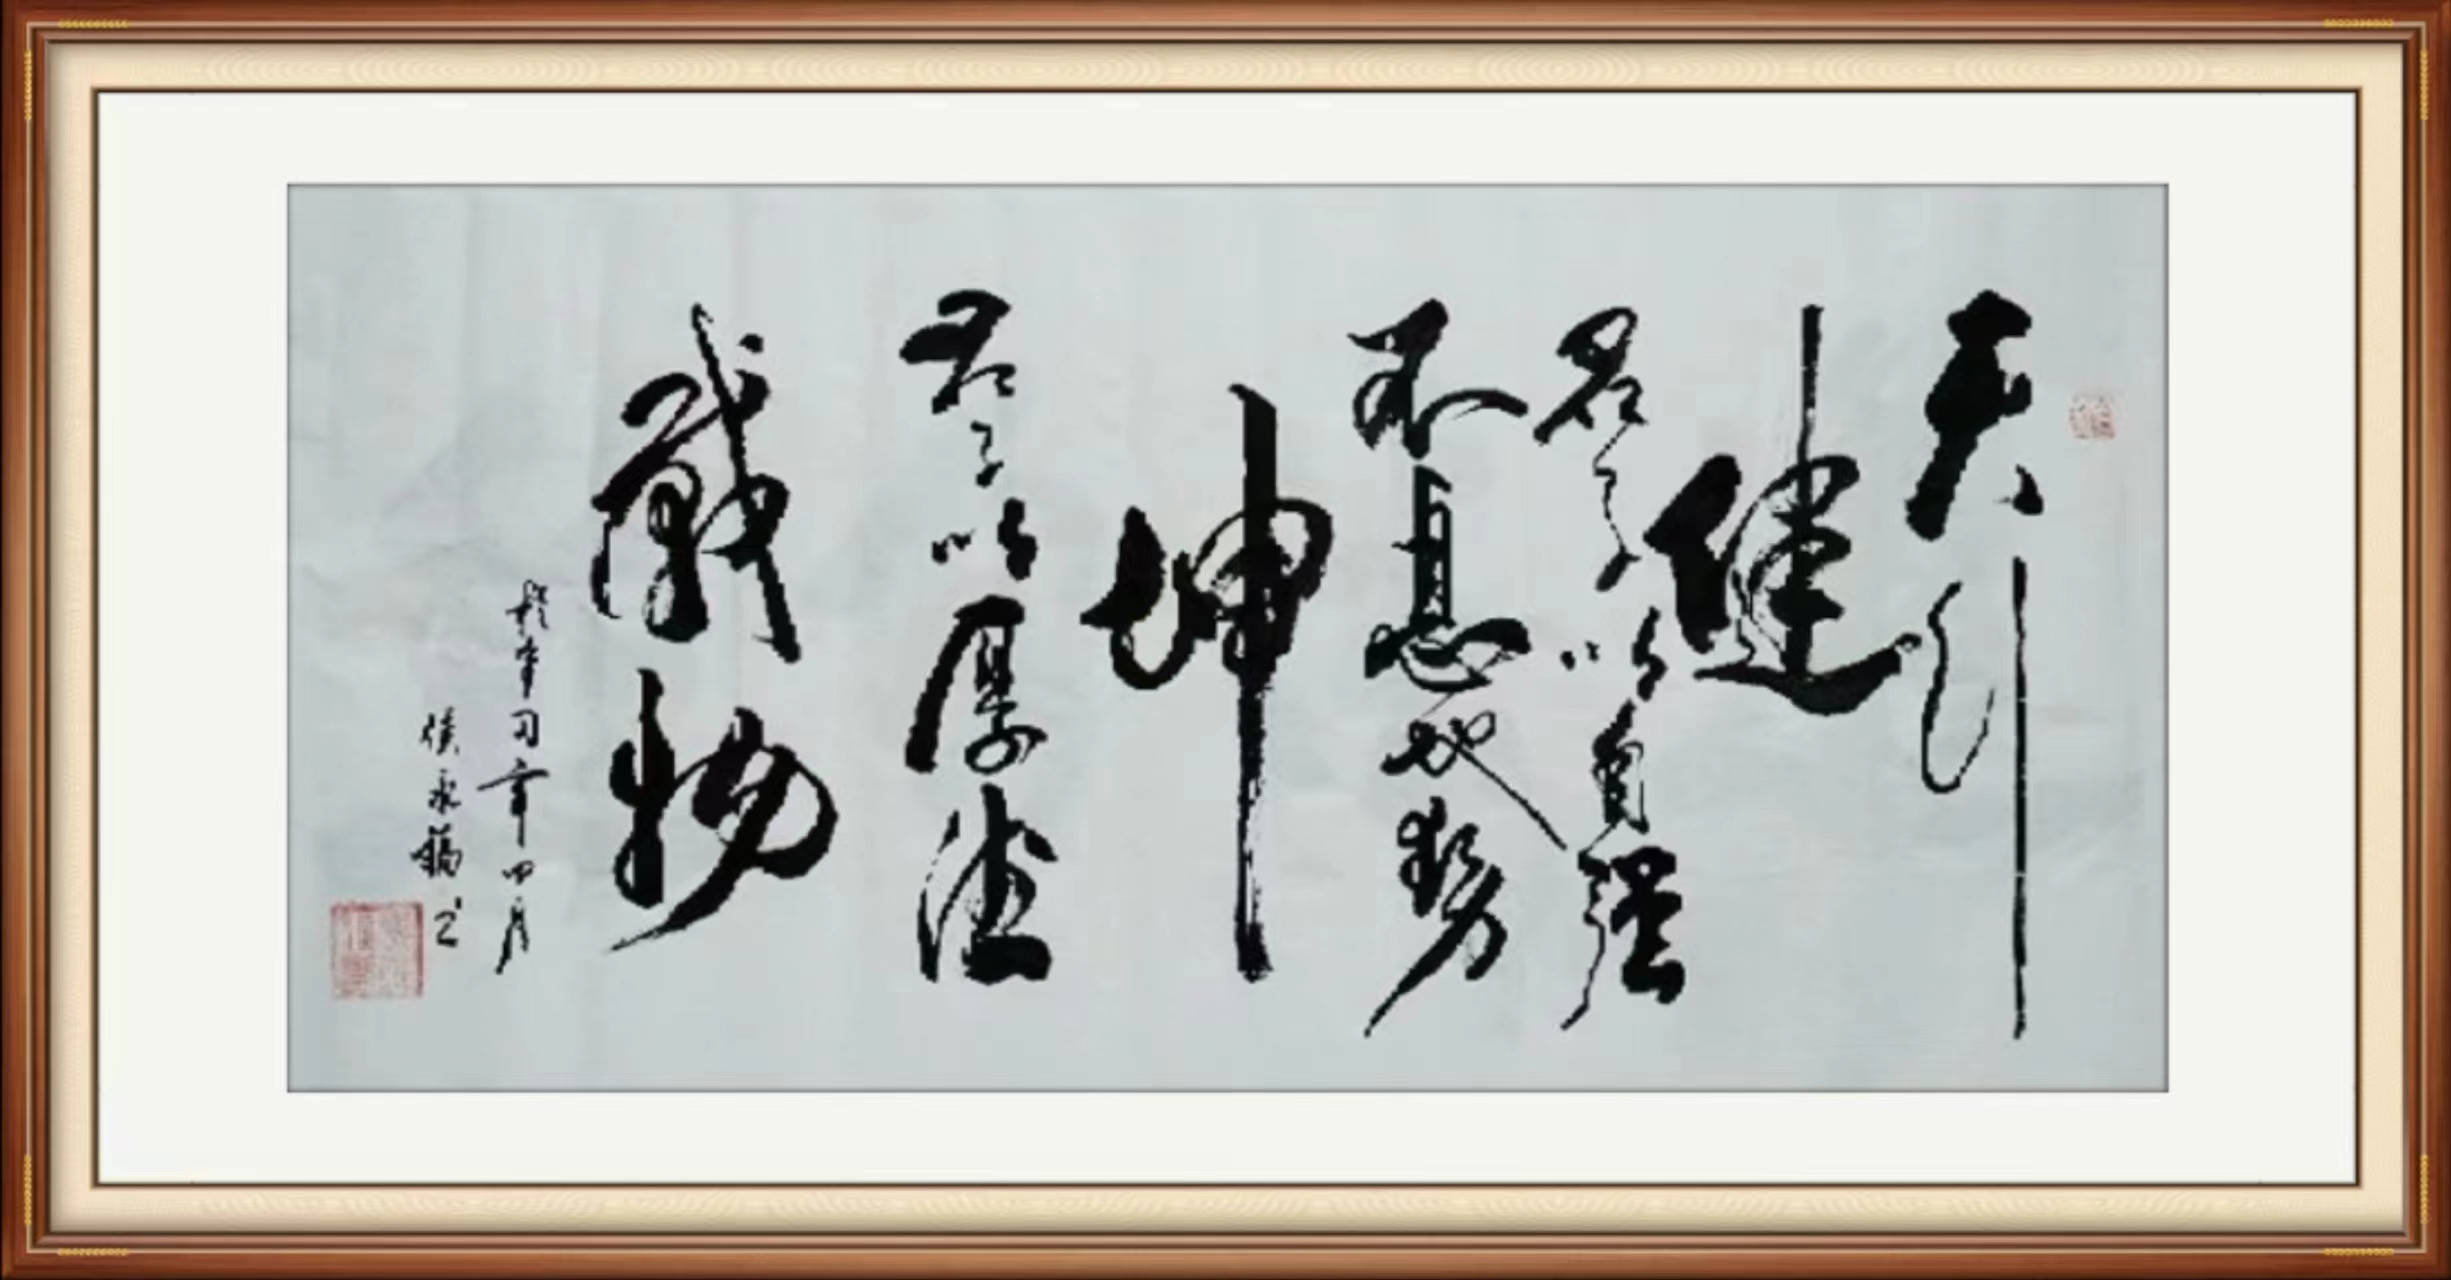 天行
健
君子以自强
不息地勢
坤
君子以厚德
載物
於辛丑年四月
侯永 书